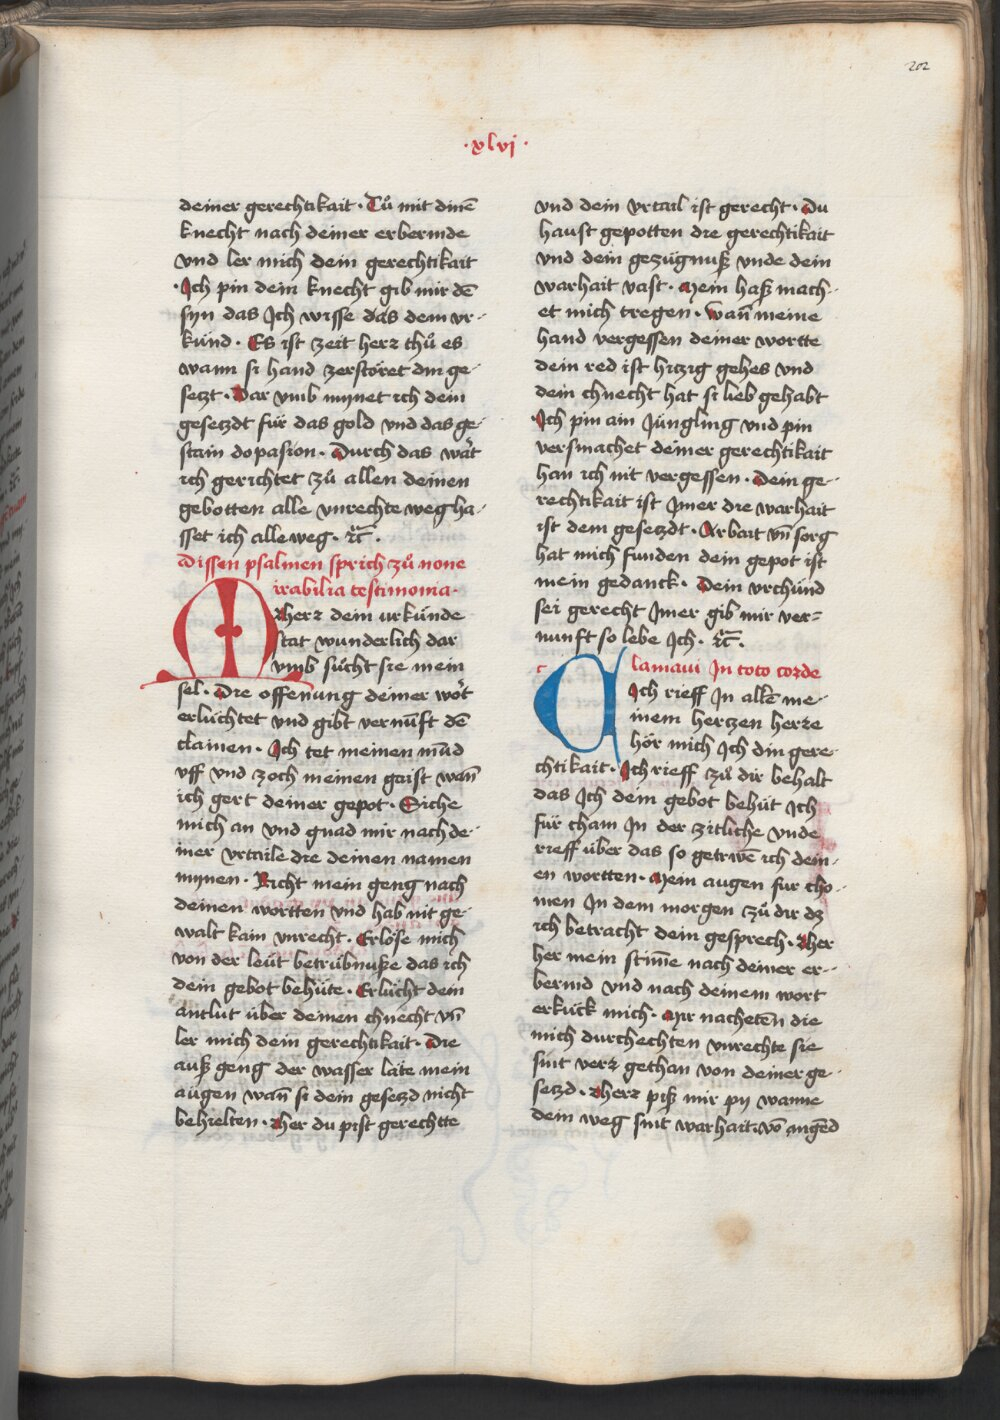 202
·xlvj·
deiner gerechtikait · Tuͦ mit dinē
knecht nach deiner erbermde
vnd ler mich dein gerechtikait
·Ich pin dein knecht gib mir dē
syn das Ich wisse das dem vr-
kúnd · Es ist zeit herz thuͦ es
wann si hand zerstöret din ge-
setzt · Dar vmb mynet ich dein
gesetzdt für das gold vnd das ge-
stain dopasion · Durch das wart
ich gerichtet zuͦ allen deinen
gebotten alle vnrechte weg ha-
sset ich alleweg · ꝛc̄ ·
Dissen psalmen sprich zuͦ none
Mirabilia testimonia ·
Herz dem urkúnde
stat wunderlich dar
vmb suͦcht sie mein
sel · Die offenung deiner wort
erlúchtet vnd gibt vernúft dē
clainen · Ich tet meinen mūd
vff vnd zoch meinen gaist wañ
ich gert deiner gepot · Siche
mich an vnd gnad mir nach de-
iner vrtaile die deinen namen
mynen · Richt mein geng nach
deinen wortten vnd hab nit ge-
walt kain vnrecht · Erlöse mich
von der leút betrübnuße das ich
dein gebot behúte · Erlúcht dein
antlut über deinen chnecht vn̄
ler mich dein gerechtikait · Die
auß geng der wasser läte mein
augen wañ si dein gesetzd nicht
behielten · Her du pist gerechtte
vnd dein vrtail ist gerecht · Du
haust gepotten die gerechtikait
vnd dein gezúgnuß vnde dein
warhait vast · Mein haß mach-
et mich tregen · Wañ meine
hand vergessen deiner wortte
dein red ist hitzig gehes vnd
dein chnecht hat si lieb gehabt
·Ich pin ain Júngling vnd pin
versmachet deiner gerechtikait
han ich nit vergessen · Dein ge-
rechtikait ist Jmer die warhait
ist dem gesetzdt · Arbait vn̄ sorg
hat mich funden dem gepot ist
mein gedanck · Dein vrchúnd
sei gerecht Jmer gib mir ver=
nunft so lebe Ich · ꝛc̄ ·
Clamaui In toto corde
Ich rieff In allē me-
inem hertzen herze
hör mich Ich din gere-
chtikait · Ich rieff zuͦ dir behalt
das Ich dein gebot behút Ich
für cham In der zitliche vnde
rieff über das so getrwē ich dein-
en wortten · Mein augen fur cho-
men In dem morgen zuͦ dir dz
ich betracht dein gesprech · Her
her mein stim̄e nach deiner er-
bermd vnd nach deinem wort
erkúck mich · Mir nachetēn die
mich durchechten vnrechte sie
sint verz gethan von deiner ge-
setzd · Herz piß mir py wanne
dem weg sint warhait · võ angēd